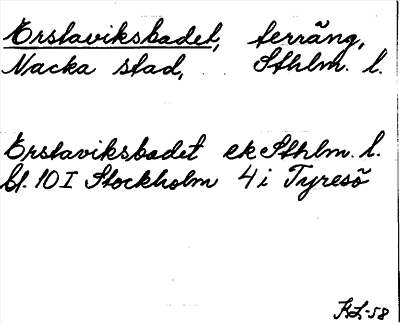 Erstaviksbadet, terräng,
Nacka stad, Sthlm. l.
Erstaviksbadet ek Sthlm. l.
bl. 10 I Stockholm 4 i Tyresö
KL-58